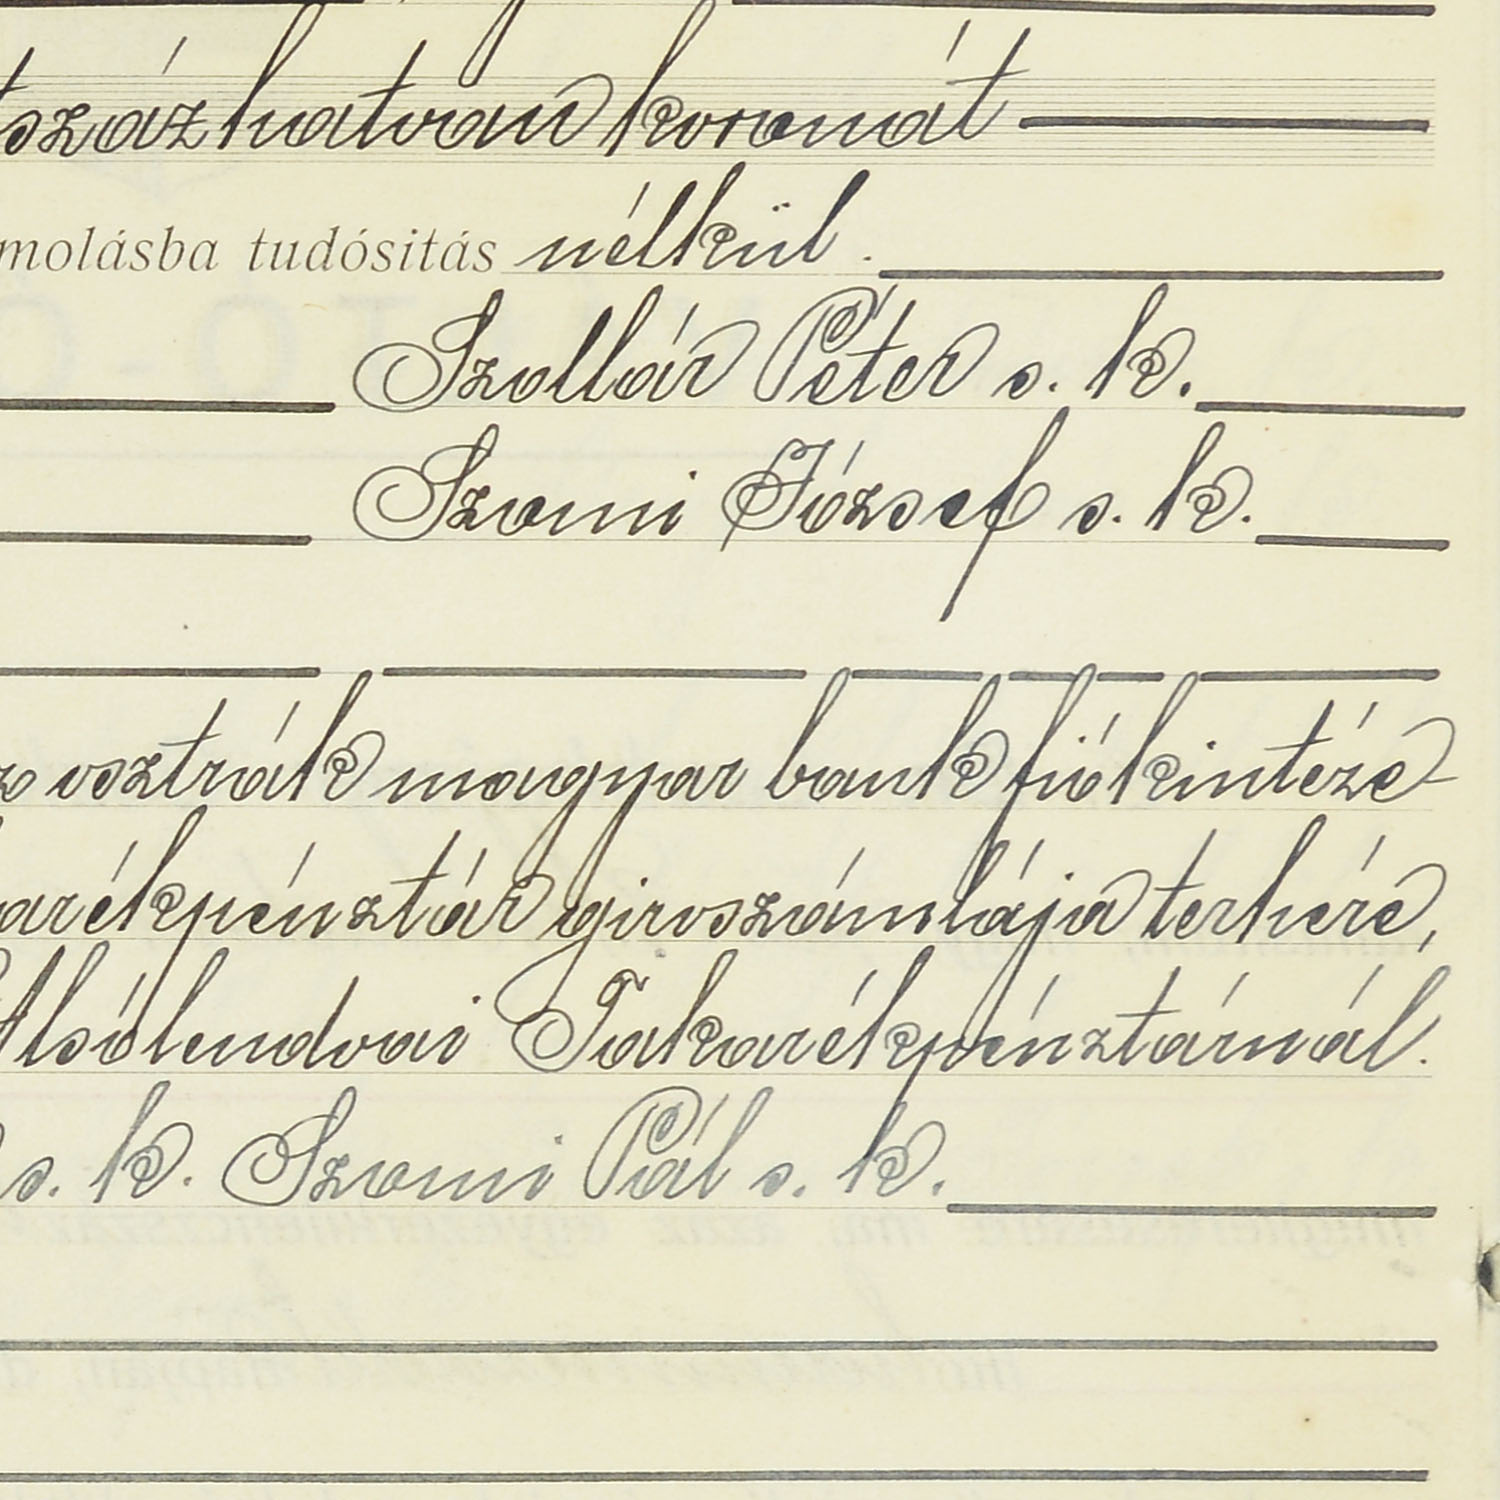 tszáz hatvan koronát
molásba tudósitás nélkül.
Szollár Péter s. k.
Szomi József s. k.
z osztrák magyar bank fiókintéze
arékpénztár giroszámlája terhére,
Alsólendvai Takarékpénztárnál.
s. k. Szomi Pál s. k.